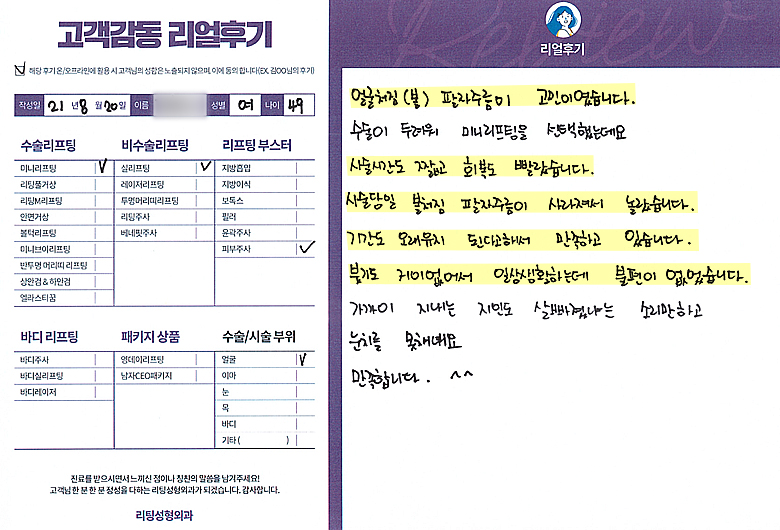 고객감동 리얼후기
해당 후기 온/오프라인에 활용 시 고객님의 성함은 노출되지 않으며, 이에 동의 합니다(EX, 김OO님의 후기)
작성일 21 년 8 월 20 일 이름 성별 여 나이 49
수술리프팅
미니리프팅
리팅풀거상
리팅M리프팅
안면거상
볼턱리프팅
미니브이리프팅
반투명 머리띠 리프팅
상안검 & 하안검
엘라스티꿈
비수술리프팅
실리프팅
레이저리프팅
투명머리띠리프팅
리팅주사
베네핏주사
리프팅 부스터
지방흡입
지방이식
보톡스
필러
윤곽주사
피부주사
바디 리프팅
바디주사
바디실리프팅
바디레이저
패키지 상품
영데이리프팅
남자CEO패키지
수술/시술 부위
얼굴
이마
눈
목
바디
기타 ( )
진료를 받으시면서 느끼신 점이나 칭찬의 말씀을 남겨주세요!
고객님 한 분 한 분 정성을 다하는 리팅성형외과가 되겠습니다. 감사합니다.
리팅성형외과
Review
리얼후기
얼굴처짐(볼) 팔자주름이 고민이었습니다.
수술이 두려워 미니리프팅을 선택했는데요
시술시간도 짧고 회복도 빨랐습니다.
시술당일 볼처짐 팔자주름이 사라져서 놀랐습니다.
기간도 오래유지 된다고해서 만족하고 있습니다.
붓기도 거이없어서 일상생활하는데 불편이 없었습니다.
가까이 지내는 지인도 살빠졌냐는 소리만하고
눈치를 못채네요
만족합니다. ^^